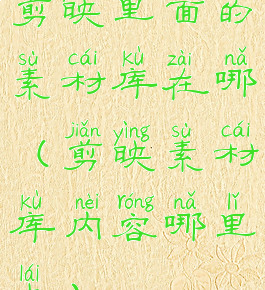 剪映里面的
sù cái kù zài nǎ
素材库在哪
jiǎn yìng sù cái
（剪映素材
kù nèi róng nǎ lǐ
库内容哪里
lái